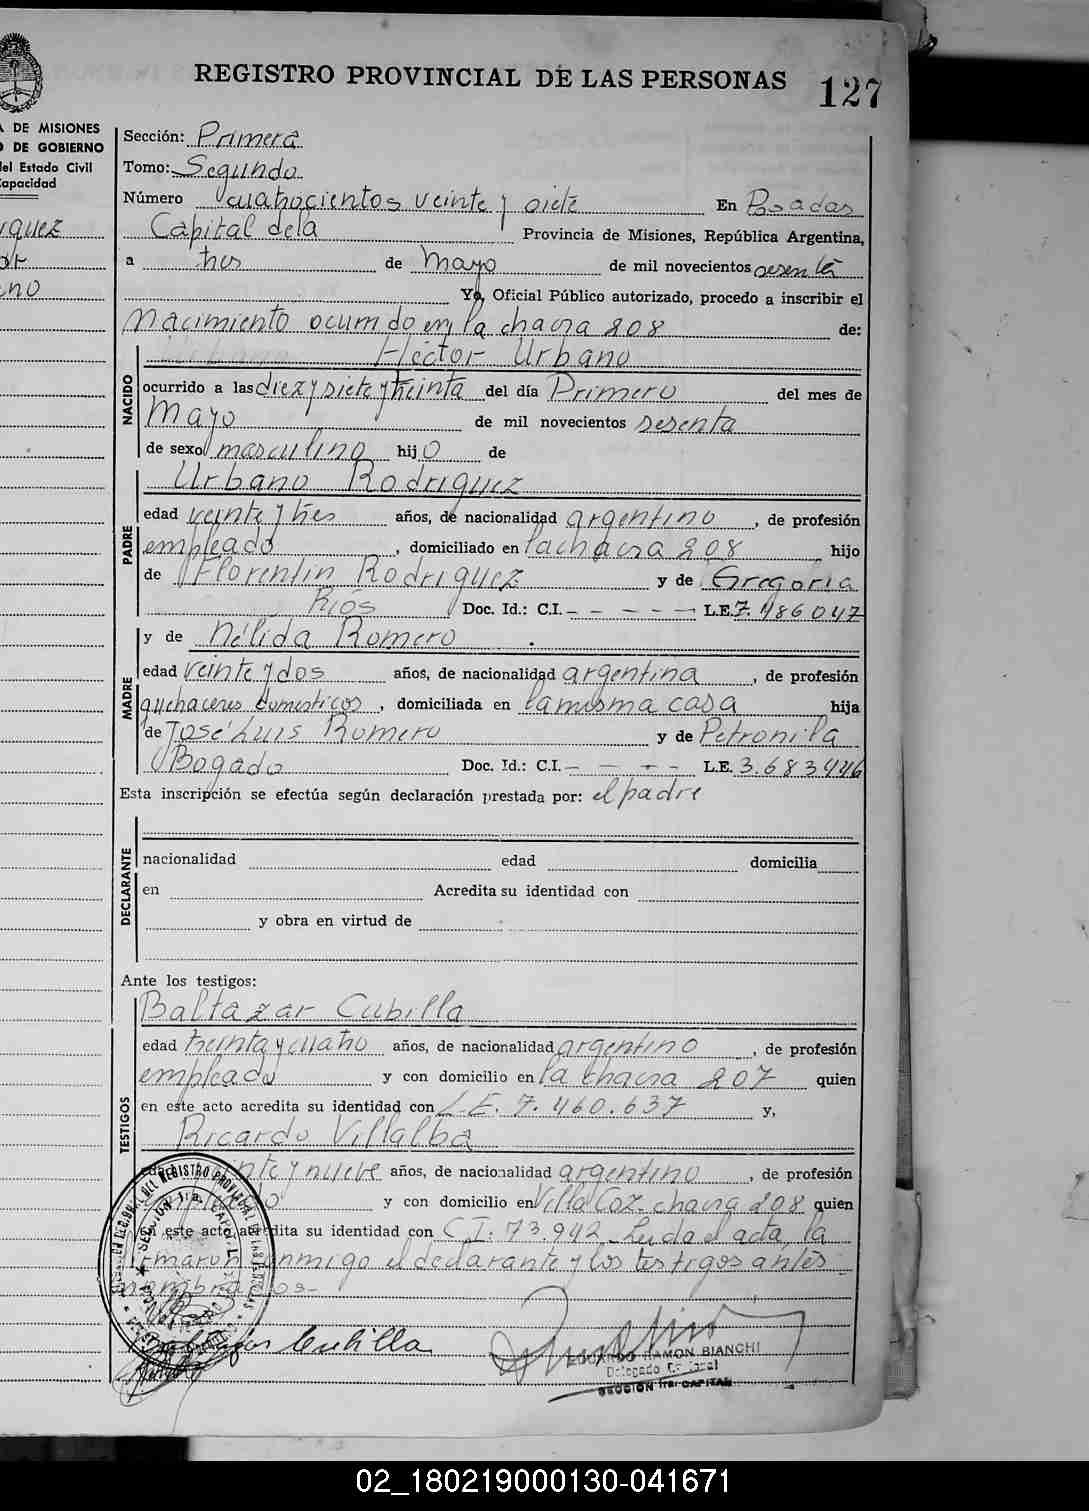 REGISTRO PROVINCIAL DE LAS PERSONAS 127
A DE MISIONES
O DE GOBIERNO
del Estado Civil
Capacidad
Sección: Primera
Tomo: Segundo
Número cuatrocientos veinte y siete En Posadas
Capital de la Provincia de Misiones, República Argentina,
a tres de Mayo de mil novecientos sesenta
Yo, Oficial Público autorizado, procedo a inscribir el
Nacimiento ocurrido en la chacra 208 de:
Héctor Urbano
NACIDO
ocurrido a las diez y siete y treinta del día Primero del mes de
Mayo de mil novecientos sesenta
de sexo masculino hijo de
Urbano Rodriguez
PADRE
edad veinte y tres años, de nacionalidad argentino, de profesión
empleado, domiciliado en la chacra 208 hijo
de Florentin Rodriguez y de Gregoria
Riós Doc. Id.: C.I. - - - - - L.E. 7.486047
y de Nélida Romero
MADRE
edad veinte y dos años, de nacionalidad argentina, de profesión
quehaceres domesticos, domiciliada en la misma casa hija
de José Luis Romero y de Petronila
Bogado Doc. Id.: C.I. - - - - L.E. 3.683446
Esta inscripción se efectúa según declaración prestada por: el padre
DECLARANTE
nacionalidad edad domicilia
en Acredita su identidad con
y obra en virtud de
Ante los testigos:
Baltazar Cubilla
TESTIGOS
edad treinta y cuatro años, de nacionalidad argentino, de profesión
empleado y con domicilio en la chacra 207 quien
en este acto acredita su identidad con L.E. 7.460.637 y,
Ricardo Villalba
y nueve años, de nacionalidad argentino, de profesión
y con domicilio en Villa Coz. chacra 208 quien
en este acto acredita su identidad con C.I. 73.942. Leida el acta, la
firmaron conmigo el declarante y los testigos antes
nombrados.-
Cubilla
EDUARDO RAMON BIANCHI
Delegado Seccional
SECCION 1ra. CAPITAL
02_180219000130-041671